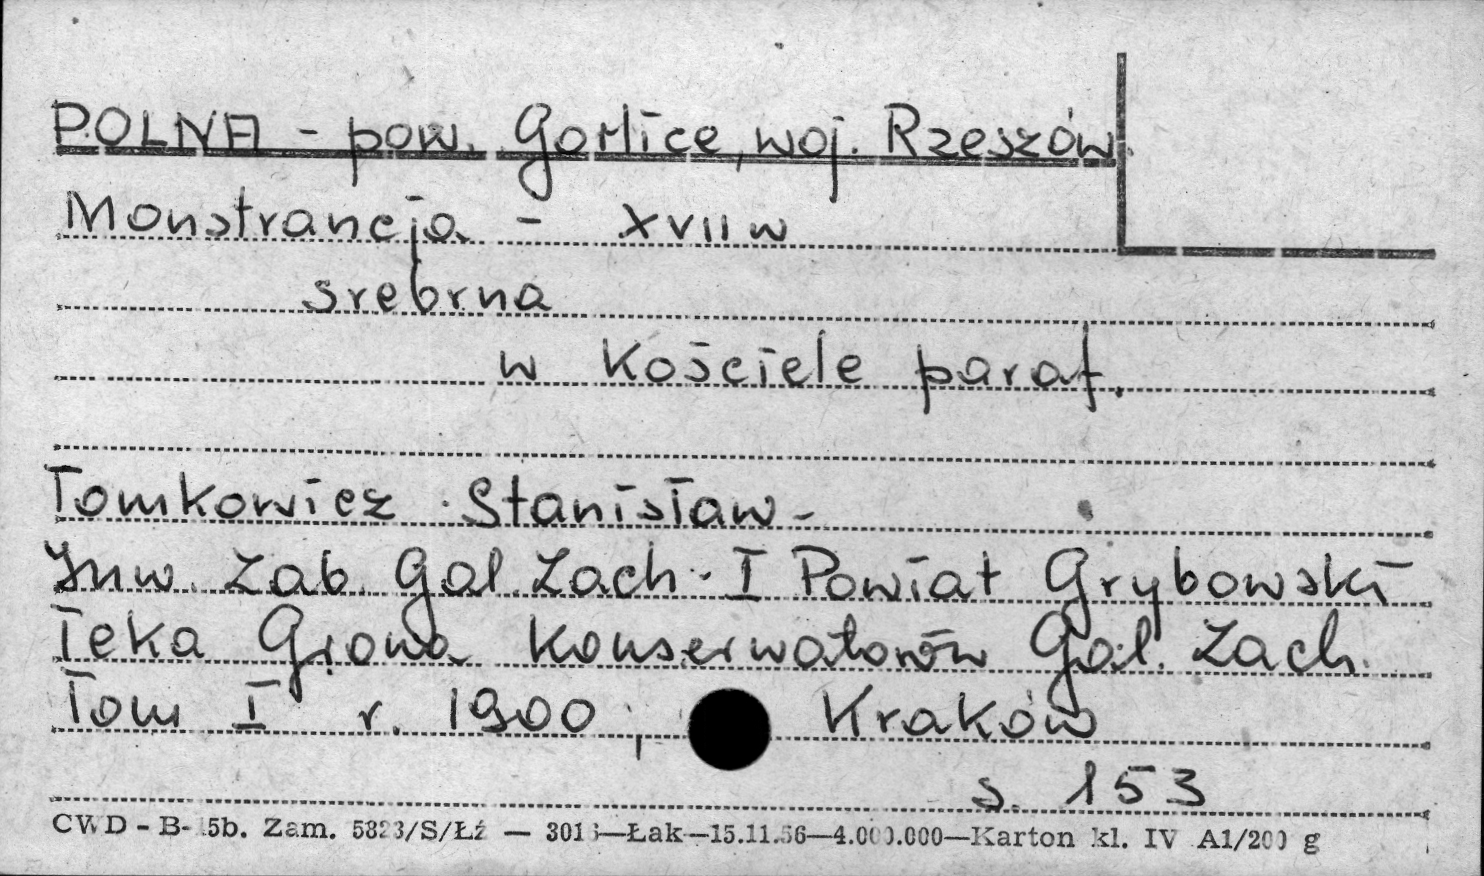 POLNA - pow. Gorlice, woj. Rzeszów.
Monstrancja - XVII w
srebrna
w Kościele paraf.
Tomkowicz Stanisław -
Inw. Zab. Gal. Zach. I Powiat Grybowski
Teka Grona Konserwatorów Gal. Zach.
Tom I r. 1900, Kraków
s. 153
CWD - B- 5b. Zam. 5823/S/Łź — 3013—Łak—15.11.56—4.000.000—Karton kl. IV A1/200 g